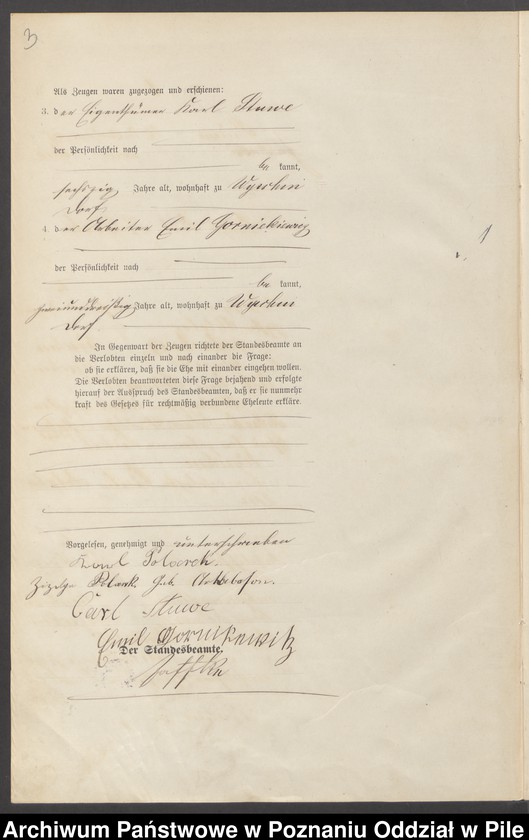 3
Als Zeugen waren zugezogen und erschienen:
3. der Eigenthümer Karl Stuwe
der Persönlichkeit nach
be kannt,
sechszig Jahre alt, wohnhaft zu
Dorf
4. der Arbeiter Emil Gornickiewicz
der Persönlichkeit nach
be kannt,
zweiunddreißig Jahre alt, wohnhaft zu
Dorf.
In Gegenwart der Zeugen richtete der Standesbeamte an
die Verlobten einzeln und nach einander die Frage:
ob sie erklären, daß sie die Ehe mit einander eingehen wollen.
Die Verlobten beantworteten diese Frage bejahend und erfolgte
hierauf der Ausspruch des Standesbeamten, daß er sie nunmehr
kraft des Gesetzes für rechtmäßig verbundene Eheleute erkläre.
Vorgelesen, genehmigt und unterschrieben
Karl
geb.
Carl Stuwe
Emil Gornikewitz
Der Standesbeamte.
Jaffke
Archiwum Państwowe w Poznaniu Oddział w Pile